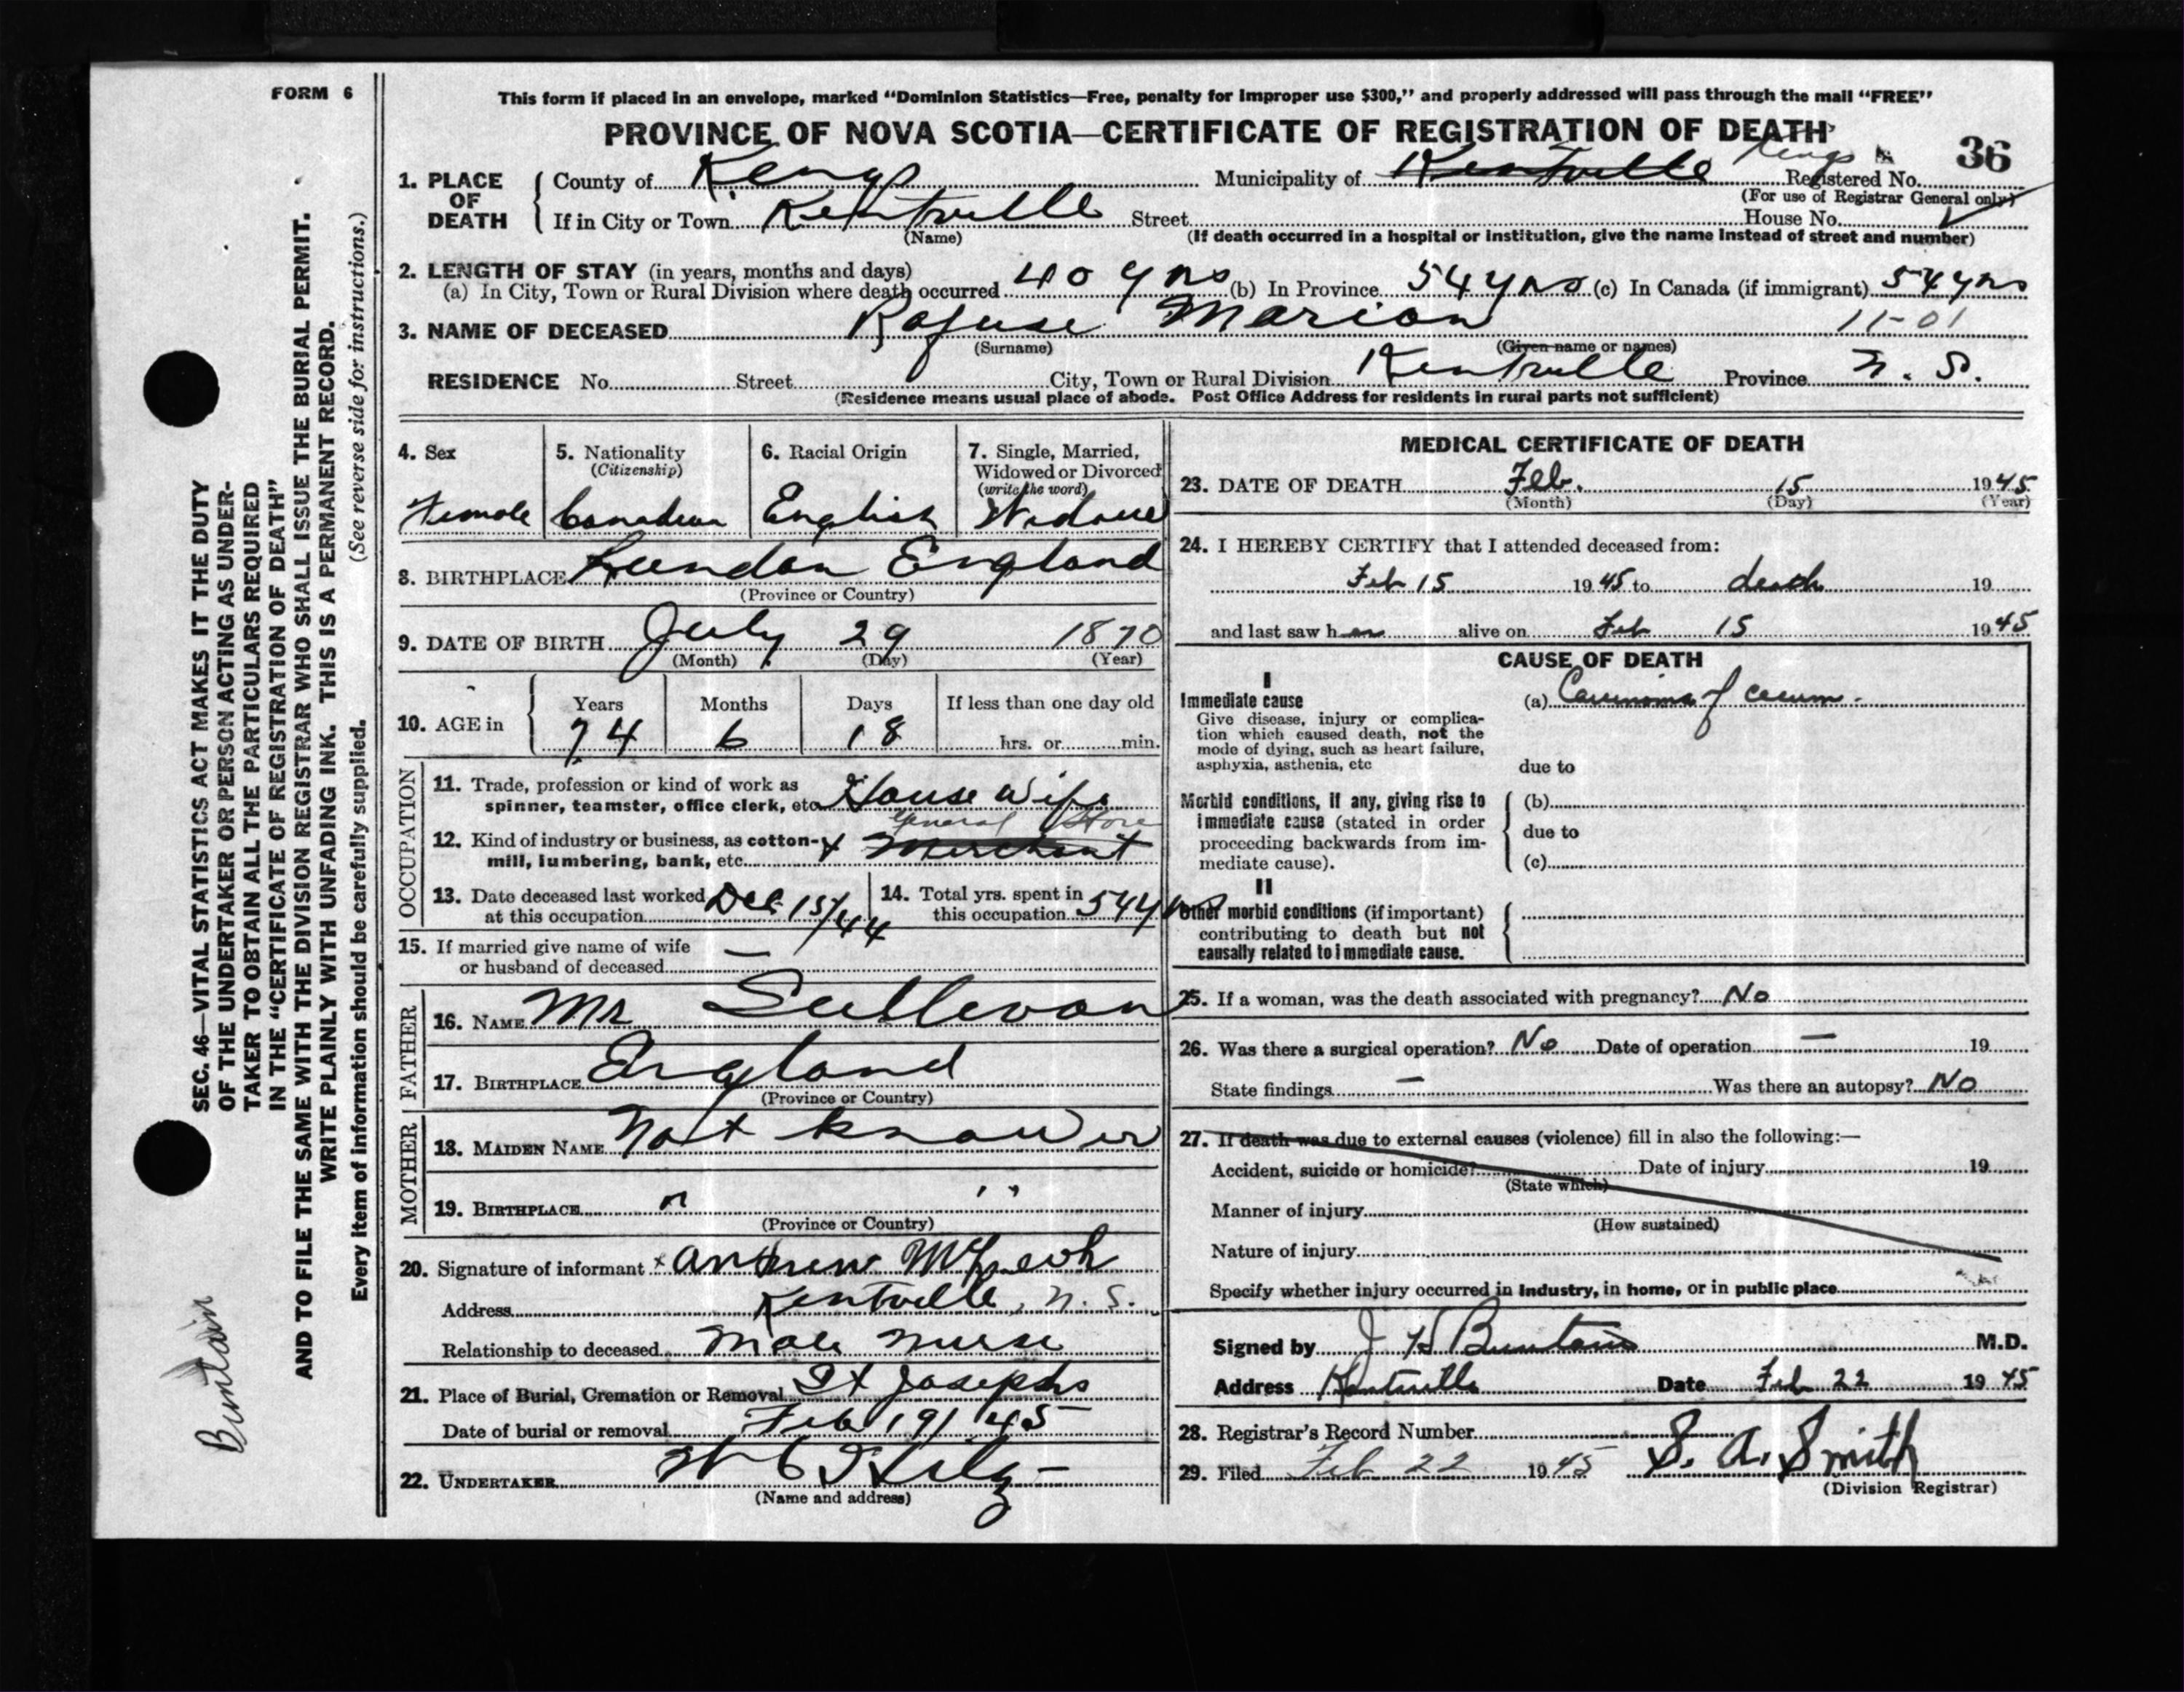 FORM 6
This form if placed in an envelope, marked "Dominion Statistics—Free, penalty for improper use $300," and properly addressed will pass through the mail "FREE"
PROVINCE OF NOVA SCOTIA—CERTIFICATE OF REGISTRATION OF DEATH
36
1. PLACE OF DEATH
County of Kings Municipality of Kentville Kings Registered No.
(For use of Registrar General only)
If in City or Town Kentville Street House No.
(Name) (If death occurred in a hospital or institution, give the name instead of street and number)
2. LENGTH OF STAY (in years, months and days)
(a) In City, Town or Rural Division where death occurred 40 yrs (b) In Province 54 yrs (c) In Canada (if immigrant) 54 yrs
3. NAME OF DECEASED Rafuse Marion 11-01
(Surname) (Given name or names)
RESIDENCE No. Street City, Town or Rural Division Kentville Province N. S.
(Residence means usual place of abode. Post Office Address for residents in rural parts not sufficient)
4. Sex
Female
5. Nationality
(Citizenship)
Canadian
6. Racial Origin
English
7. Single, Married,
Widowed or Divorced
(write the word)
Widow
8. BIRTHPLACE London England
(Province or Country)
9. DATE OF BIRTH July 29 1870
(Month) (Day) (Year)
10. AGE in
Years Months Days If less than one day old
74 6 18 hrs. or min.
OCCUPATION
11. Trade, profession or kind of work as
spinner, teamster, office clerk, etc. House Wife
General Store
12. Kind of industry or business, as cotton-
mill, lumbering, bank, etc. Merchant
13. Date deceased last worked
at this occupation Dec 15/44
14. Total yrs. spent in
this occupation 54 yrs
15. If married give name of wife
or husband of deceased —
FATHER
16. NAME Mr Sullivan
17. BIRTHPLACE England
(Province or Country)
MOTHER
18. MAIDEN NAME Not known
19. BIRTHPLACE " "
(Province or Country)
20. Signature of informant x Andrew
Address Kentville, N. S.
Relationship to deceased Male Nurse
21. Place of Burial, Cremation or Removal St Josephs
Date of burial or removal Feb 19/45
22. UNDERTAKER
(Name and address)
MEDICAL CERTIFICATE OF DEATH
23. DATE OF DEATH Feb. 15 1945
(Month) (Day) (Year)
24. I HEREBY CERTIFY that I attended deceased from:
Feb 15 1945 to death 19
and last saw her alive on Feb 15 1945
CAUSE OF DEATH
I
Immediate cause
Give disease, injury or complica-
tion which caused death, not the
mode of dying, such as heart failure,
asphyxia, asthenia, etc
(a) Carcinoma of cecum.
due to
Morbid conditions, if any, giving rise to
immediate cause (stated in order
proceeding backwards from im-
mediate cause).
(b)
due to
(c)
II
Other morbid conditions (if important)
contributing to death but not
causally related to immediate cause.
25. If a woman, was the death associated with pregnancy? No
26. Was there a surgical operation? No Date of operation — 19
State findings — Was there an autopsy? No
27. If death was due to external causes (violence) fill in also the following:—
Accident, suicide or homicide? Date of injury 19
(State which)
Manner of injury
(How sustained)
Nature of injury
Specify whether injury occurred in industry, in home, or in public place
Signed by J H Buntain M.D.
Address Kentville Date Feb 22 1945
28. Registrar's Record Number
29. Filed Feb 22 1945 S. A. Smith
(Division Registrar)
SEC. 46—VITAL STATISTICS ACT MAKES IT THE DUTY
OF THE UNDERTAKER OR PERSON ACTING AS UNDER-
TAKER TO OBTAIN ALL THE PARTICULARS REQUIRED
IN THE "CERTIFICATE OF REGISTRATION OF DEATH"
AND TO FILE THE SAME WITH THE DIVISION REGISTRAR WHO SHALL ISSUE THE BURIAL PERMIT.
WRITE PLAINLY WITH UNFADING INK. THIS IS A PERMANENT RECORD.
Every item of information should be carefully supplied. (See reverse side for instructions.)
Buntain